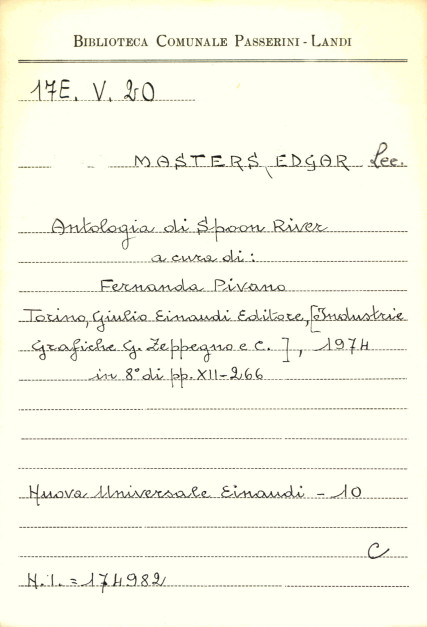 BIBLIOTECA COMUNALE PASSERINI - LANDI
17E. V. 20
MASTERS, EDGAR Lee.
Antologia di Spoon River
a cura di:
Fernanda Pivano
Torino, Giulio Einaudi Editore, [Industrie
Grafiche G. Zeppegno e C. ], 1974
in 8° di pp. XII-266
Nuova Universale Einaudi - 10
C
N.I. = 174982